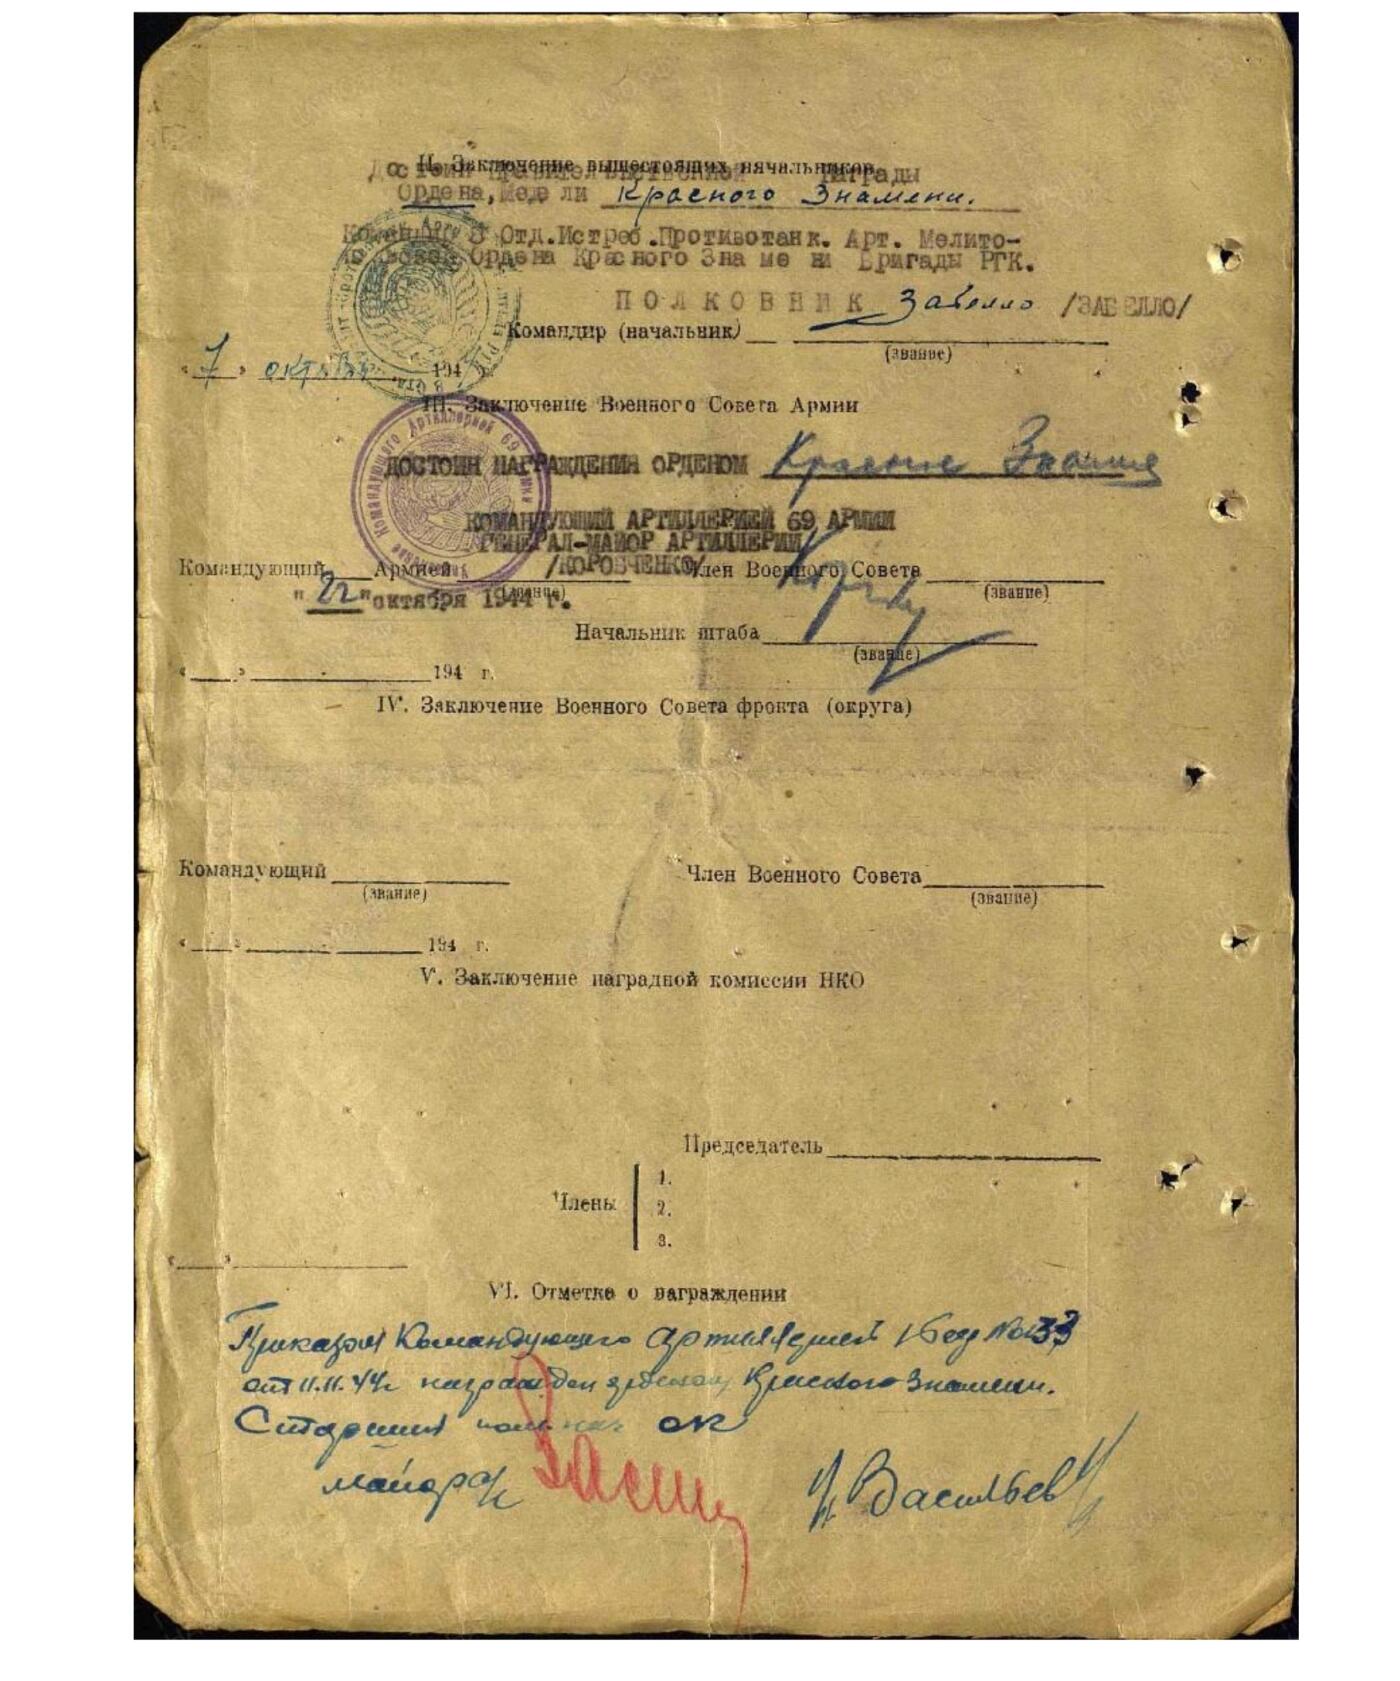 II. Заключение вышестоящих начальников
Достоин Правительственной награды
Ордена, Медали Красного Знамени.
Командир 8 Отд.Истреб.Противотанк. Арт. Мелито-
Ордена Красного Знамени Бригады РГК.
ПОЛКОВНИК Забелло /ЗАБЕЛЛО/
Командир (начальник)
(звание)
"7" октября 1944 г.
III. Заключение Военного Совета Армии
ДОСТОИН НАГРАЖДЕНИЯ ОРДЕНОМ Красное Знамя
КОМАНДУЮЩИЙ АРТИЛЛЕРИЕЙ 69 АРМИИ
ГЕНЕРАЛ-МАЙОР АРТИЛЛЕРИИ
/КОРОБЧЕНКО/
Командующий Армией Член Военного Совета
(звание) (звание)
"22" октября 1944 г.
Начальник штаба
(звание)
" " 194 г.
IV. Заключение Военного Совета фронта (округа)
Командующий Член Военного Совета
(звание) (звание)
" " 194 г.
V. Заключение наградной комиссии НКО
Председатель
Члены
1.
2.
3.
VI. Отметка о награждении
Приказом Командующего Артиллерией
от 11.11.44г награжден орденом Красного Знамени.
Старший
майор Васильев